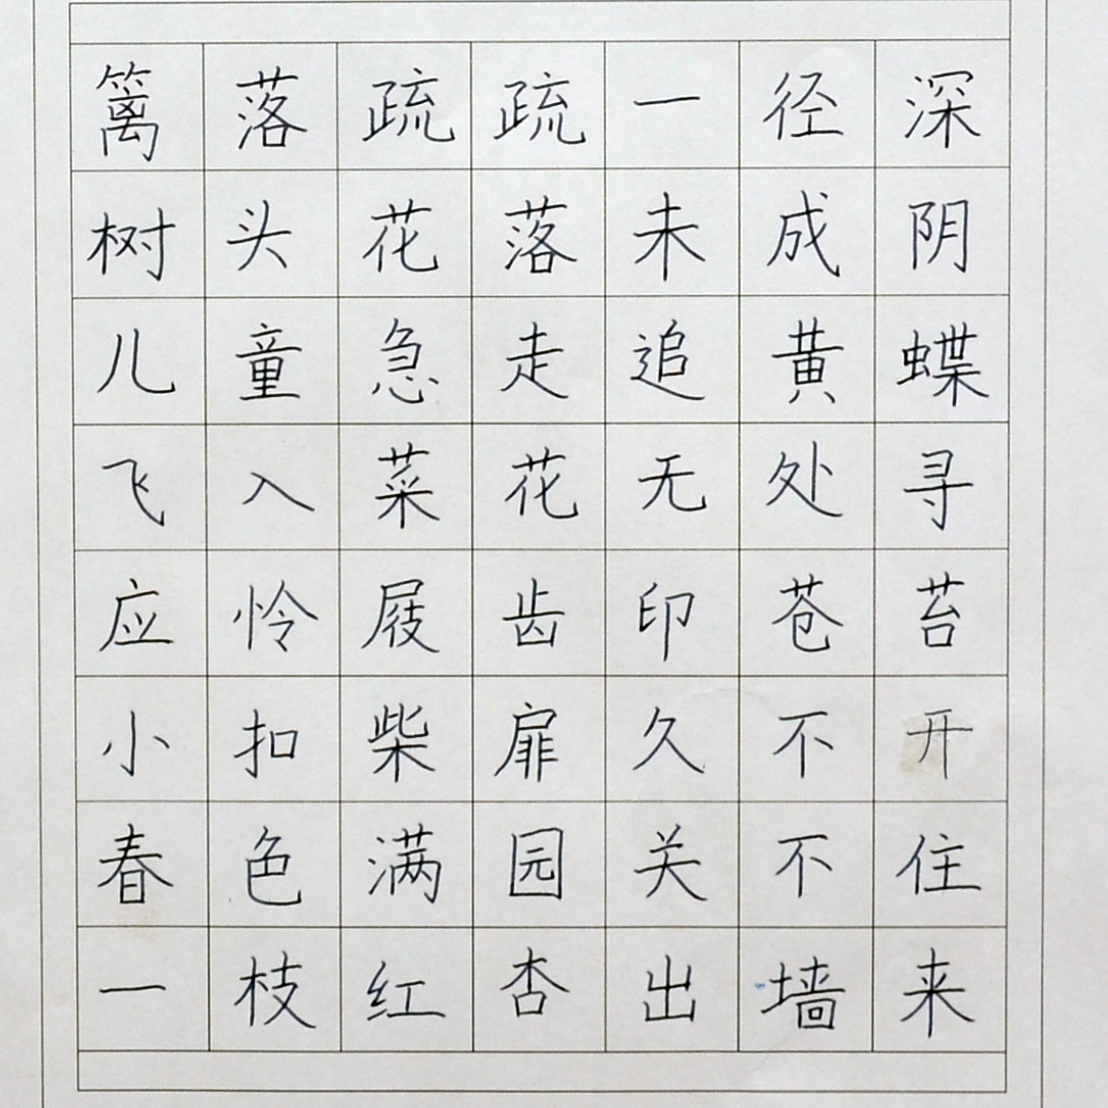 篱落疏疏一径深
树头花落未成阴
儿童急走追黄蝶
飞入菜花无处寻
应怜屐齿印苍苔
小扣柴扉久不开
春色满园关不住
一枝红杏出墙来